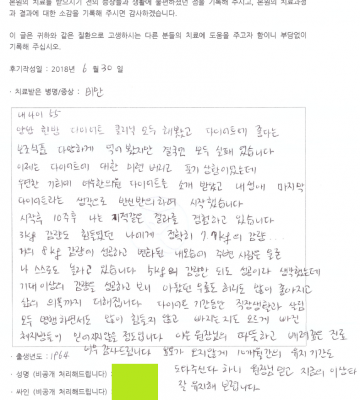 본원의 치료를 받으시기 전의 증상들과 생활에 불편하셨던 점을 기록해 주시고, 본원의 치료과정
과 결과에 대한 소감을 기록해 주시면 감사하겠습니다.
이 글은 귀하와 같은 질환으로 고생하시는 다른 분들의 치료에 도움을 주고자 함이니 부담없이
기록해 주십시오.
후기작성일 : 2018년 6월 30일
· 치료받은 병명/증상 : 비만
내 나이 55
안한 다이어트 모두 해봤고 다이어트에 좋다는
다양하게 먹어 봤지만 결국엔 모두 실패 했습니다
이제는 다이어트에 대한 미련 버리고 포기 상태이었는데
우연한 기회에 다이어트를 소개 받았고 내 생애 마지막
다이어트라는 생각으로 반신반의하며 시작했습니다
시작후 10주후 나는 결과를 경험하고 있습니다
3kg 감량도 힘들었던 나에게 7.9kg의 감량...
거의 8kg 감량이 성공하고 변화된 내모습에 주변 사람들 물론
나 스스로도 놀라고 있습니다 5kg의 감량만 되도 성공이라 생각했는데
기대 이상의 감량을 성공하고 보니 아팠던 무릎도 허리도 많이 좋아지고
삶의 의욕까지 더해집니다 다이어트 기간동안 직장생활과 살림
모두 병행하면서도 많이 힘들지 않고
원장님의 따뜻하고 배려깊은 진료
너무 감사드립니다 10개월간의 유지기간도
· 출생년도 : 1964
· 성명 (비공개 처리해드립니다)
도와주신다 하니 원장님 믿고 지금의 이상태
· 싸인 (비공개 처리해드립니다)
잘 유지해 보렵니다